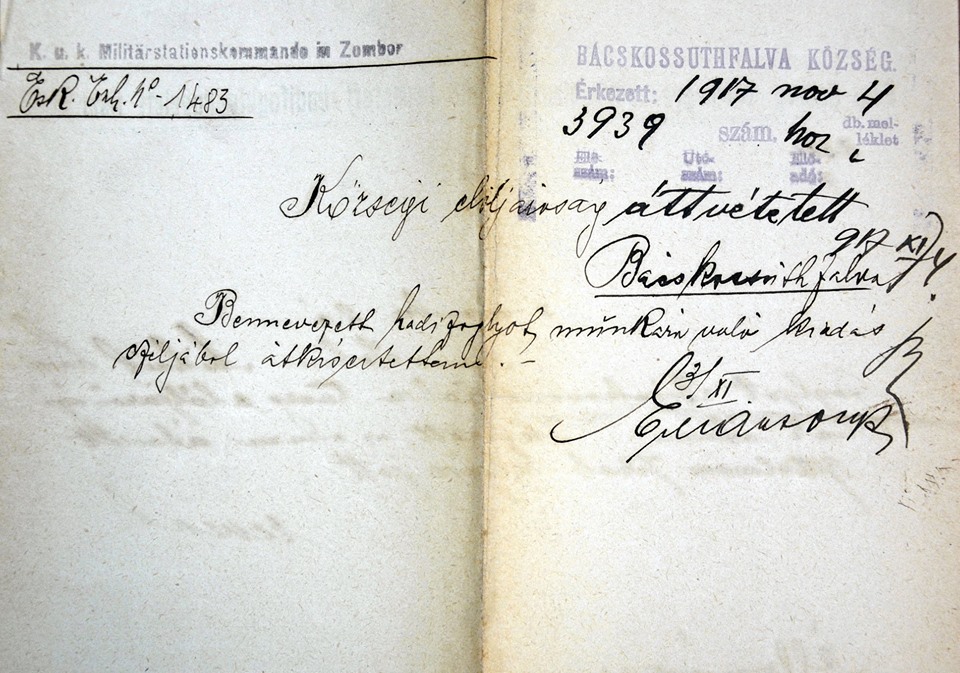 K. u. k. Militärstationskommando in Zombor
1483
BÁCSKOSSUTHFALVA KÖZSÉG.
Érkezett: 1917 nov 4
3939 szám, hoz db. mel-
léklet
Elő-
szám: Utó-
szám: Elő-
adó:
Községi elöljáróság áttvétetett
917 XI/4
Bácskossuthfalva
Bennevezett hadifoglyot munkára való kiadás
céljából átkísértettem. —
3/XI